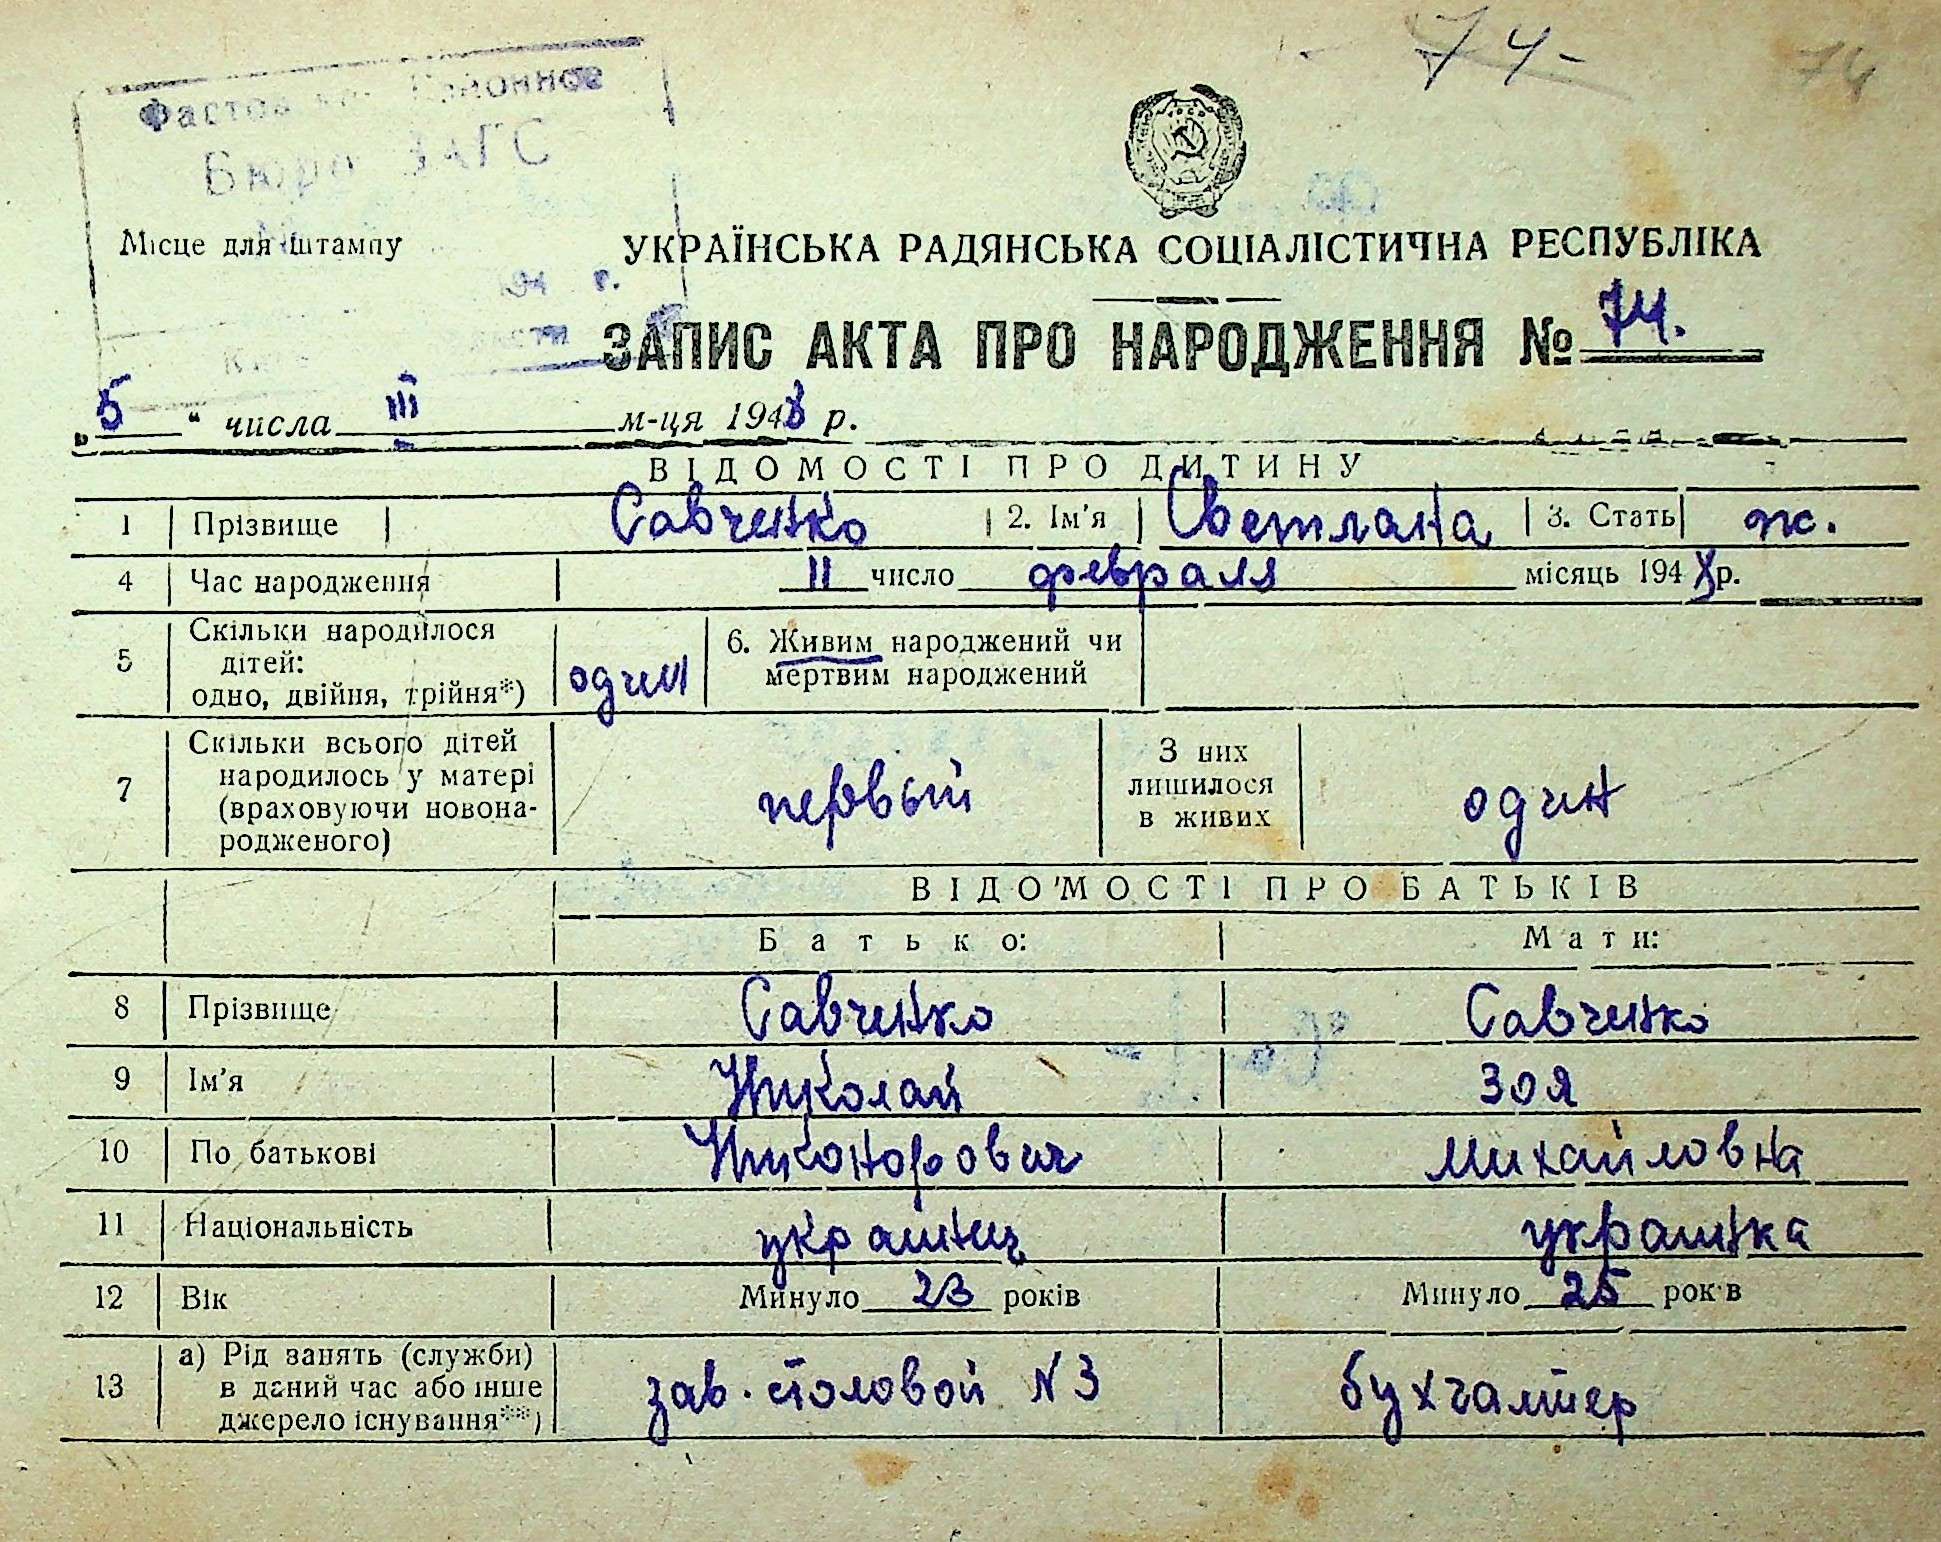 74-
74
Бюро ЗАГС
Місце для штампу
УКРАЇНСЬКА РАДЯНСЬКА СОЦІАЛІСТИЧНА РЕСПУБЛІКА
194 г.
ЗАПИС АКТА ПРО НАРОДЖЕННЯ № 74.
„5“ числа III м-ця 1948 р.
ВІДОМОСТІ ПРО ДИТИНУ
1 Прізвище Савченко 2. Ім'я Светлана 3. Стать ж.
4 Час народження 11 число февраля місяць 194 р.
5 Скільки народилося дітей: одно, двійня, трійня*) один 6. Живим народжений чи мертвим народжений
7 Скільки всього дітей народилось у матері (враховуючи новона-родженого) первый З них лишилося в живих один
ВІДОМОСТІ ПРО БАТЬКІВ
Батько: Мати:
8 Прізвище Савченко Савченко
9 Ім'я Николай Зоя
10 По батькові Никонорович Михайловна
11 Національність украинец украинка
12 Вік Минуло 23 років Минуло 25 років
13 а) Рід занять (служби) в даний час або інше джерело існування**) зав. столовой N 3 бухгалтер